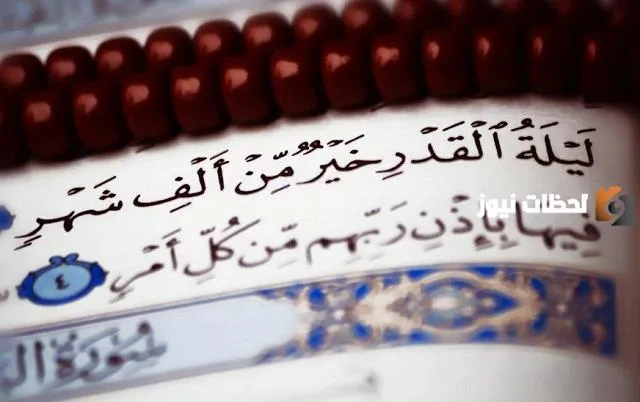 لَيْلَةُ الْقَدْرِ خَيْرٌ مِّنْ أَلْفِ شَهْرٍ
فِيهَا بِإِذْنِ رَبِّهِم مِّن كُلِّ أَمْرٍ ٤
لحظات نيوز
سُورَةُ